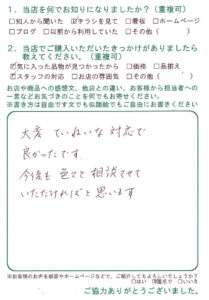 1. 当店を何でお知りになりましたか？（重複可）
□知人から聞いた ☑チラシを見て □看板 □ホームページ
□ブログ □以前から利用していた □その他（　　）
2. 当店でご購入いただいたきっかけがありましたら
教えてください。（重複可）
☑気に入った品物が見つかったから □価格 □品揃え
☑スタッフの対応 □お店の雰囲気 □その他（　　）
お店や商品への感想文、他店との違い、お客様から担当者への
一言などお気づきのことを何でもお寄せください。
※書き方は自由です文でも似顔絵でもご自由にお書きください
大変 ていねいな 対応で
良かったです
今後も 色々と 相談させて
いただければと 思います
※お客様のお声を紙面やホームページなどで、ご紹介してもよろしいでしょうか？
□はい ☑匿名で □いいえ
ご協力ありがとうございました。